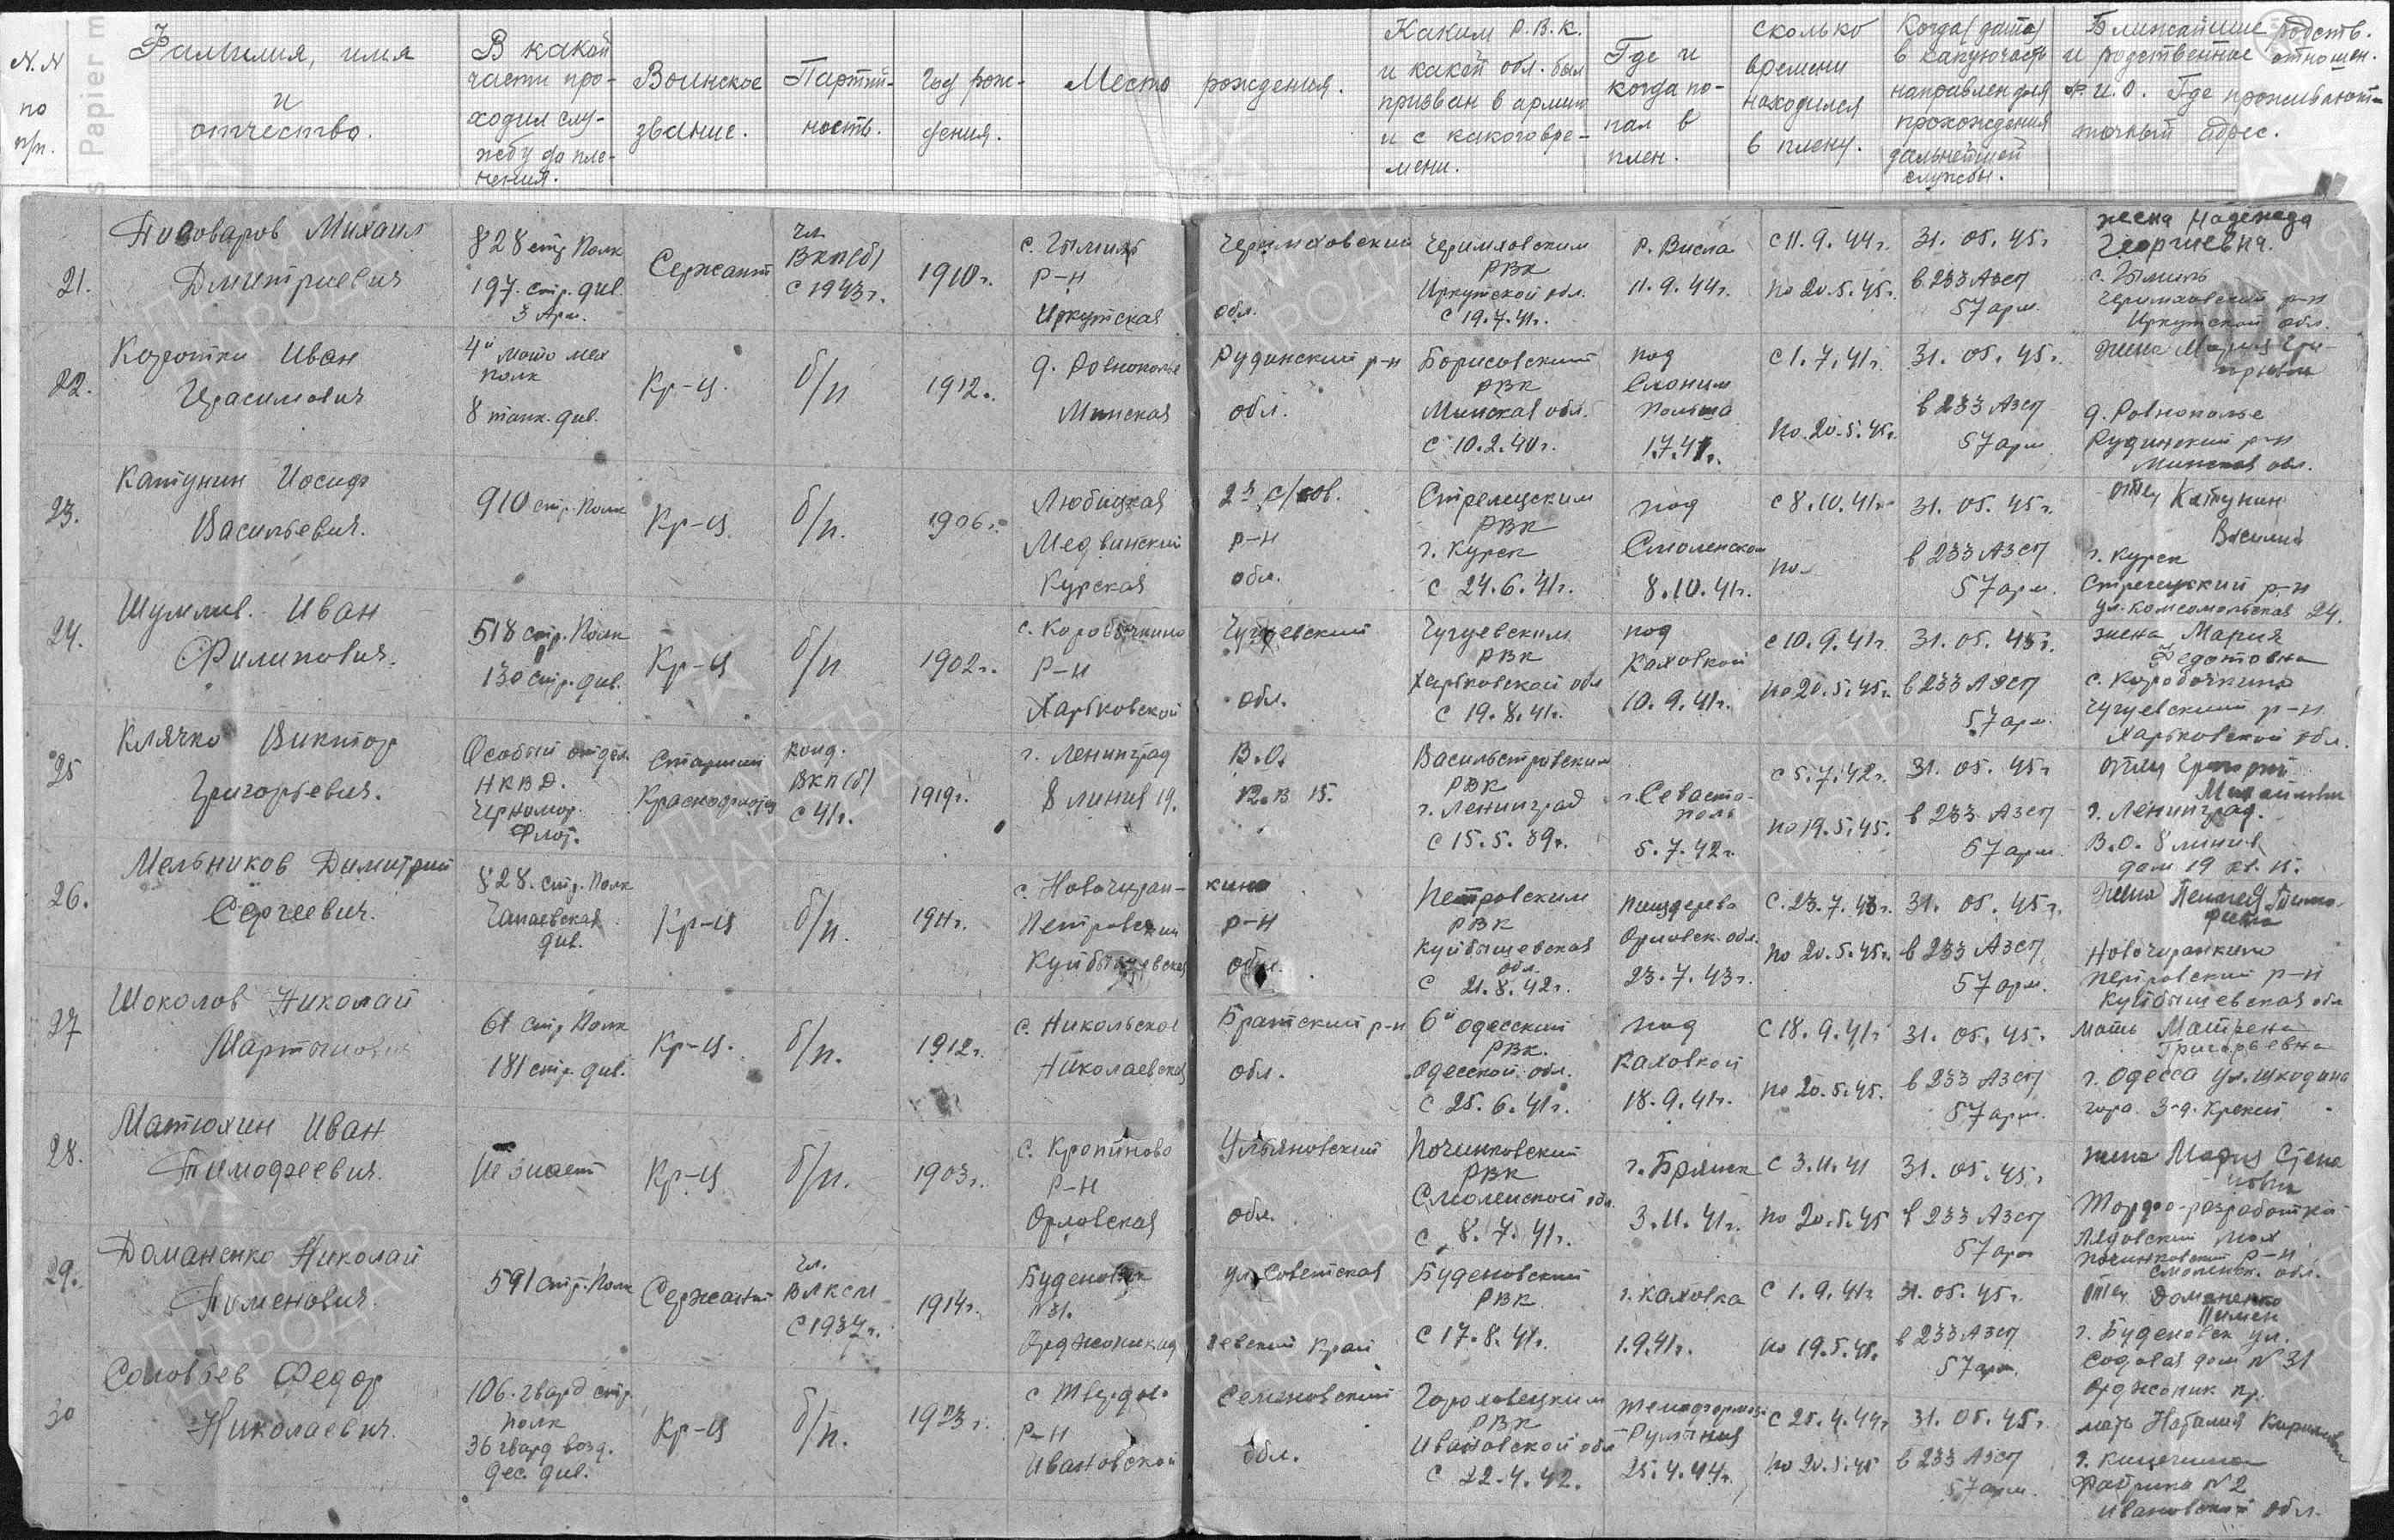 N.N по п/п.
Фамилия, имя и отчество.
В какой части проходил службу до пленения.
Воинское звание.
Партийность.
Год рождения.
Место рождения.
Каким Р.В.К. и какой обл. был призван в армию и с какого времени.
Где и когда попал в плен.
Сколько времени находился в плену.
Когда (дата) в какую часть направлен для прохождения дальнейшей службы.
Ближайшие родственное и родств. отношен. Ф.И.О. Где проживают точный адрес.
21.
Пивоваров Михаил
Дмитриевич
828 стр Полк
197. стр. див.
3 Арм.
Сержант
чл.
ВКП(б)
с 1943 г.
1910 г.
с. Голуметь Черемховский
Р-н
Иркутская обл.
Черемховским
РВК
Иркутской обл.
с 19.7.41г.
Р. Висла
11.9.44г.
с 11.9.44г.
по 20.5.45г.
31. 05. 45г
в 233 Азсп
57 арм.
жена Надежда
Георгиевна.
Черемховский р-н
Иркутской обл.
22.
Коротки Иван
Герасимович
4й мото мех
полк
8 танк. див.
Кр-ц.
б/п
1912г.
д. Ровнополье Рудинский р-н
Минская обл.
Борисовский
РВК
Минская обл.
с 10.2.40г.
под
Слоним
Польша
1.7.41г.
с 1.7.41г.
по 20.5.45г.
31. 05. 45г.
в 233 Азсп
57 арм
жена Мария
д. Ровнополье
Рудинский р-н
Минская обл.
23.
Катунин Иосиф
Васильевич.
910 стр. Полк
Кр-ц.
б/п.
1906г.
Любицкая 2й с/сов.
Медвинский Р-н
Курская обл.
Стрелецким
РВК
г. Курск
с 24.6.41г.
под
Смоленском
8.10.41г.
с 8.10.41г
по
31. 05. 45г.
в 233 Азсп
57 арм.
отец Катунин
Василий
г. Курск
Стрелецкий р-н
ул. Комсомольская 24.
24.
Шумлив. Иван
Филипович.
518 стр. Полк
130 стр. див.
Кр-ц
б/п
1902г.
с. Коробочкино Чугуевский
Р-н
Харьковской обл.
Чугуевским
РВК
Харьковской обл
с 19.8.41г.
под
Каховкой
10.9.41г.
с 10.9.41г.
по 20.5.45г.
31. 05. 45г.
в 233 Азсп
57 арм.
жена Мария
Федотовна
с. Коробочкино
Чугуевский р-н
Харьковской обл.
25
Клячко Виктор
Григорьевич.
Особый отдел
НКВД.
Черномор.
Флот.
Старший
Краснофлотец
канд.
ВКП(б)
с 41г.
1919г.
г. Ленинград В.О.
8 линия 19. Кв 15.
Васильстровским
РВК
г. Ленинград
с 15.5.39г.
г. Севасто-
поль
5.7.42г.
с 5.7.42г.
по 19.5.45.
31. 05. 45г
в 233 Азсп
57 арм.
отец Григорий
г. Ленинград.
В.О. 8 линия
дом 19 кв. 15.
26.
Мельников Димитрий
Сергеевич.
828. стр. Полк
Чапаевская
див.
Кр-ц
б/п.
1911г.
с. Новочиран-кино
Петровский р-н
Куйбышевская обл.
Петровским
РВК
Куйбышевская
обл.
с 21.8.42г.
Орловск. обл.
23.7.43г.
с. 23.7.43г.
по 20.5.45г.
31. 05. 45г.
в 233 Азсп
57 арм.
Жена
Новочиранкино
Петровский р-н
Куйбышевская обл
27
Шоколов Николай
Мартынович
61 стр Полк
181 стр. див.
Кр-ц.
б/п.
1912г.
с. Никольское Братский р-н
Николаевская обл.
6й Одесский
РВК.
Одесской обл.
с 25.6.41г.
под
Каховкой
18.9.41г.
с 18.9.41г
по 20.5.45.
31. 05. 45г.
в 233 Азсп
57 арм.
Мать Матрена
Григорьевна
г. Одесса ул. Шкодина
гора
28.
Матюхин Иван
Тимофеевич.
Не знает
Кр-ц
б/п.
1903г.
с. Кропивново Ульяновский
Р-н
Орловская обл.
Починковский
РВК
Смоленской обл.
с 8.7.41г.
г. Брянск
3.11.41г.
с 3.11.41
по 20.5.45
31. 05. 45г.
в 233 Азсп
57 арм
жена Мария Степа
новна
Торфо-разработки
Починковский р-н
Смоленск. обл.
29.
Доманенко Николай
Пименович.
591 стр. Полк
Сержант
чл.
ВЛКСМ
с 1937г.
1914г.
Буденовск ул. Советская
N 31.
Орджоникидзевский Край
Буденовский
РВК
с 17.8.41г.
г. Каховка
1.9.41г.
с 1.9.41г
по 19.5.45.
31. 05. 45г.
в 233 Азсп
57 арм.
Отец Доманенко
Пимен
г. Буденовск ул.
Садовая дом N 31
Орджоник кр.
30
Соловьев Федор
Николаевич.
106. гвард стр.
Полк
36 гвард возд.
дес. див.
Кр-ц
б/п.
1923г.
с Семеновский
Р-н
Ивановской обл.
Гороховецким
РВК
Ивановской обл
с 22.4.42.
Румыния
25.4.44г.
с 25.4.44г
по 20.5.45
31. 05. 45г.
в 233 Азсп
57 арм.
мать Наталия Кириловна
г. Кинешма
Фабрика N 2
Ивановской обл.